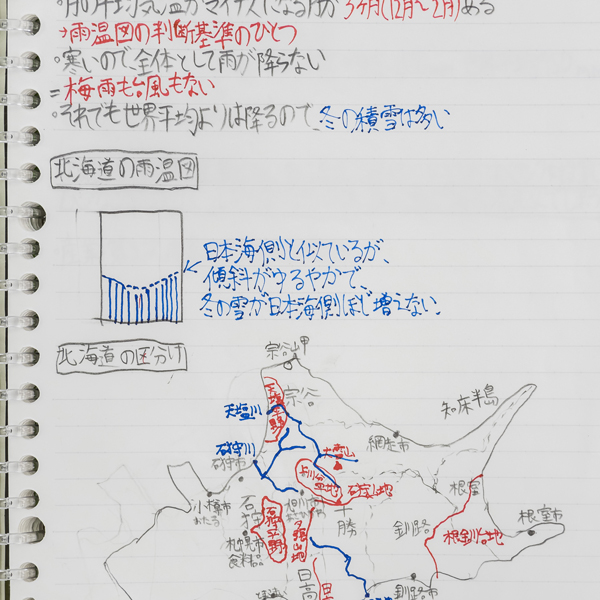 月の平均気温がマイナスになる月が3ヶ月(12月〜2月)ある
→雨温図の判断基準のひとつ
寒いので、全体として雨が降らない
=梅雨も台風もない
それでも世界平均よりは降るので、冬の積雪は多い
北海道の雨温図
日本海側と似ているが、
傾斜がゆるやかで、
冬の雪が日本海側ほど増えない
北海道の区分け
宗谷岬
宗谷
天塩平野
天塩川
知床半島
網走市
石狩川
石狩市
大雪山
上川盆地
石狩山地
根室
小樽市
おたる
石狩
石狩平野
夕張山地
十勝
釧路
根釧台地
根室市
札幌市
食料品
日高
釧路市